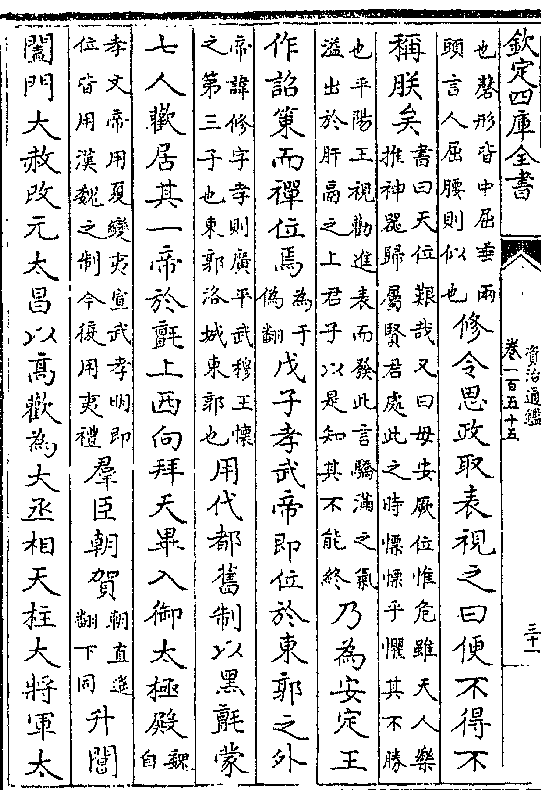 欽定四庫全書
資治通鑑
卷一百五十五
三十
也磬形皆中屈垂兩
頭言人屈腰則似也
修令思政取表視之曰便不得不
稱朕矣
書曰天位艱哉又曰毋安厥位惟危雖天人樂
推神器歸屬賢君處此之時慄慄乎懼其不勝
也平陽王視勸進表而發此言驕滿之氣
溢出於肝鬲之上君子以是知其不能終
乃為安定王
作詔策而禪位焉
為于
偽翻
戊子孝武帝即位於東郭之外
帝諱修字孝則廣平武穆王懷
之第三子也東郭洛城東郭也
用代都舊制以黑氈蒙
七人歡居其一帝於氈上西向拜天畢入御太極殿
魏
自
孝文帝用夏變夷宣武孝明即
位皆用漢魏之制今復用夷禮
羣臣朝賀
朝直遥
翻下同
升閶
闔門大赦改元太昌以高歡為大丞相天柱大將軍太